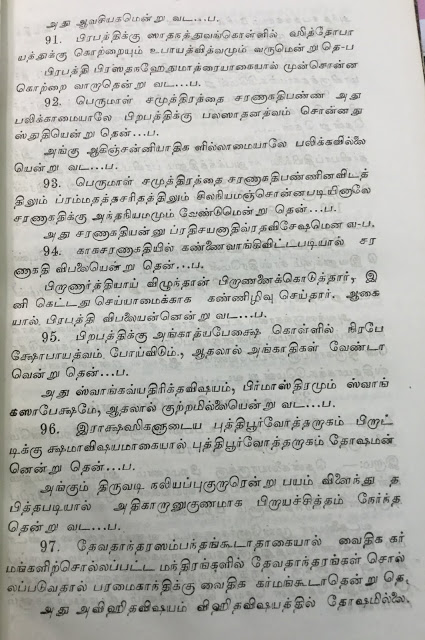 அது ஆவசியகமென்று வட...ப.
91. பிரபத்திக்கு ஸாதநத்துவங்கொள்ளில் ஸித்தோபா
யத்துக்கு கொற்றையும் உபாயத்வித்வமும் வருமென்று தெ-ப
பிரபத்தி பிரஸதநஹேதுமாத்ரையாகையால் முன்சொன்ன
கொற்றை வாராதென்று வட...ப.
92. பெருமாள் சமுத்திரத்தை சரணாகதிபண்ண அது
பலிக்காமையாலே பிறபத்திக்கு பலஸாதனத்வம் சொன்னது
ஸ்துதியென்று தென்...ப.
அங்கு ஆகிஞ்சன்னியாதிக ளில்லாமையாலே பலிக்கவில்லை
யென்று வட...ப.
93. பெருமாள் சமுத்திரத்தை சரணாகதிபண்ணினவிடத்
திலும் ப்ரம்மதத்தசரிதத்திலும் சிலநியமஞ்சொன்னபடியினாலே
சரணாகதிக்கு அந்தநியமமும் வேண்டுமென்று தென்...ப.
அது சரணாகதியன்று ப்ரதிசயனாதிவ்ரதவிசேஷமென வ-ப.
94. காகசரணாகதியில் கண்ணைவாங்கிவிட்டபடியால் சர
ணாகதி விபலையென்று தென்...ப.
பிராணார்த்தியாய் விழுந்தான் பிராணனைக்கொடுத்தார், இ
னி கெட்டது செய்யாமைக்காக கண்ணிழிவு செய்தார். ஆகை
யால் பிரபத்தி விபலையன்னென்று வட...ப.
95. பிறபத்திக்கு அங்காத்யபேக்ஷை கொள்ளில் நிரபே
க்ஷோபாயத்வம் போய்விடும்., ஆதலால் அங்காதிகள் வேண்டா
வென்று தென்...ப.
அது ஸ்வாங்கவ்யதிரிக்தவிஷயம், பிர்மாஸ்திரமும் ஸ்வாங்
கஸாபேக்ஷமே, ஆதலால் குற்றமில்லையென்று வட...ப.
96. இராக்ஷஸிகளுடைய புத்திபூர்வோத்தராகம் பிராட்
டிக்கு க்ஷமாவிஷயமாகையால் புத்திபூர்வோத்தராகம் தோஷமன்
னென்று தென்...ப.
அங்கும் திருவடி நலியப்புகுராரென்று பயம் விளைந்து த
பித்தபடியால் அதிகாரானுகுணமாக பிராயச்சித்தம் நேர்ந்த
தென்று வட...ப.
97. தேவதாந்தரஸம்பந்தங்கூடாதாகையால் வைதிக கர்
மங்களிற்சொல்லப்பட்ட மந்திரங்களில் தேவதாந்தரங்கள் சொல்
லப்படுவதால் பரமைகாந்திக்கு வைதிக கர்மங்கூடாதென்று தெ.
அது அவிஹிதவிஷயம் விஹிதவிஷயத்தில் தோஷமில்லை.